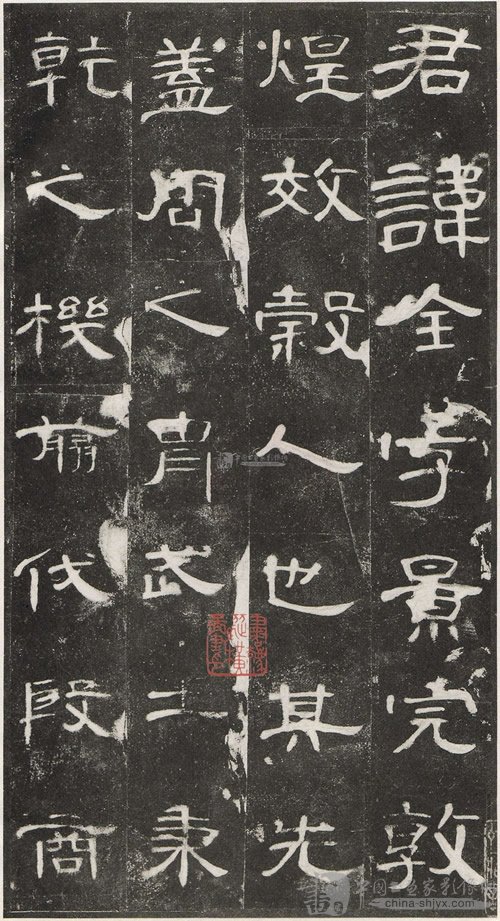 君諱全字景完敦
煌效穀人也其先
蓋周之胄武王秉
乾之機翦伐殷商
china-shjyx.com